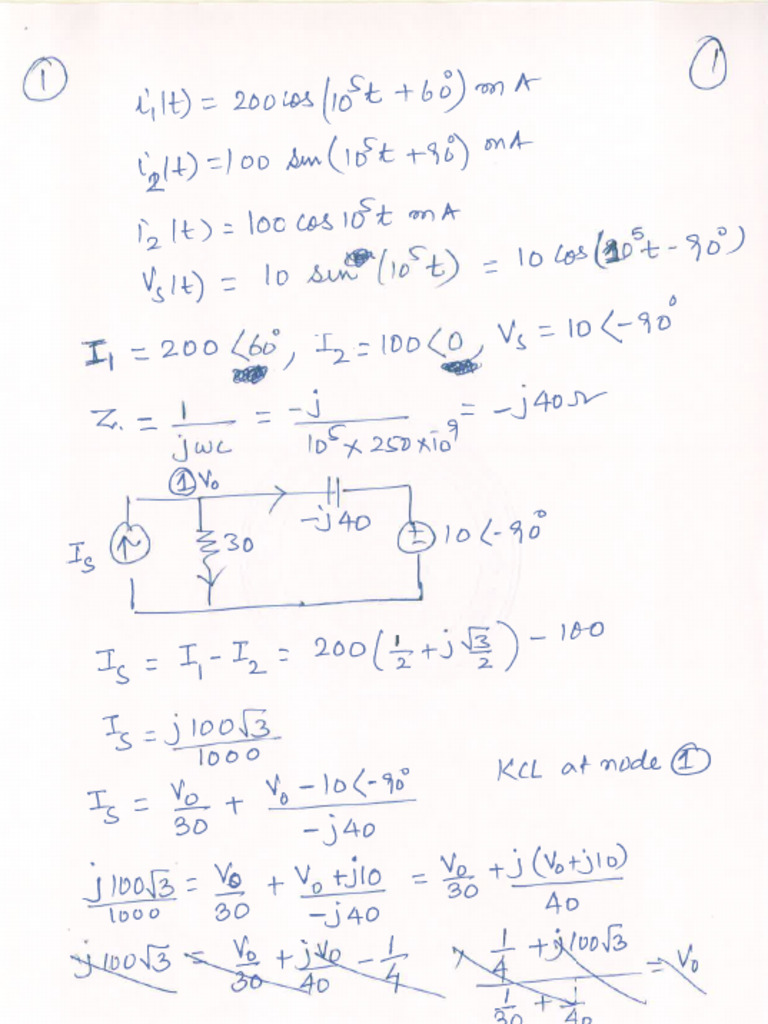 ① ①
i₁(t) = 200 cos (10⁵t + 60°) mA
i₂(t) = 100 sin (10⁵t + 90°) mA
i₂(t) = 100 cos 10⁵t mA
Vs(t) = 10 sin (10⁵t) = 10 cos (10⁵t - 90°)
I₁ = 200 <60°, I₂ = 100 <0, Vs = 10 <-90°
Z. = 1/jωc = -j/(10⁵ × 250 × 10⁹) = -j40Ω
① V₀
-j40
Is 30 10 <-90°
Is = I₁ - I₂ = 200 (1/2 + j √3/2) - 100
Is = j100√3/1000
KCL at node ①
Is = V₀/30 + (V₀ - 10 <-90°)/(-j40)
j100√3/1000 = V₀/30 + (V₀ + j10)/(-j40) = V₀/30 + j(V₀ + j10)/40
j100√3 = V₀/30 + jV₀/40 - 1/4 (1/4 + j100√3)/(1/30 + j/40) = V₀